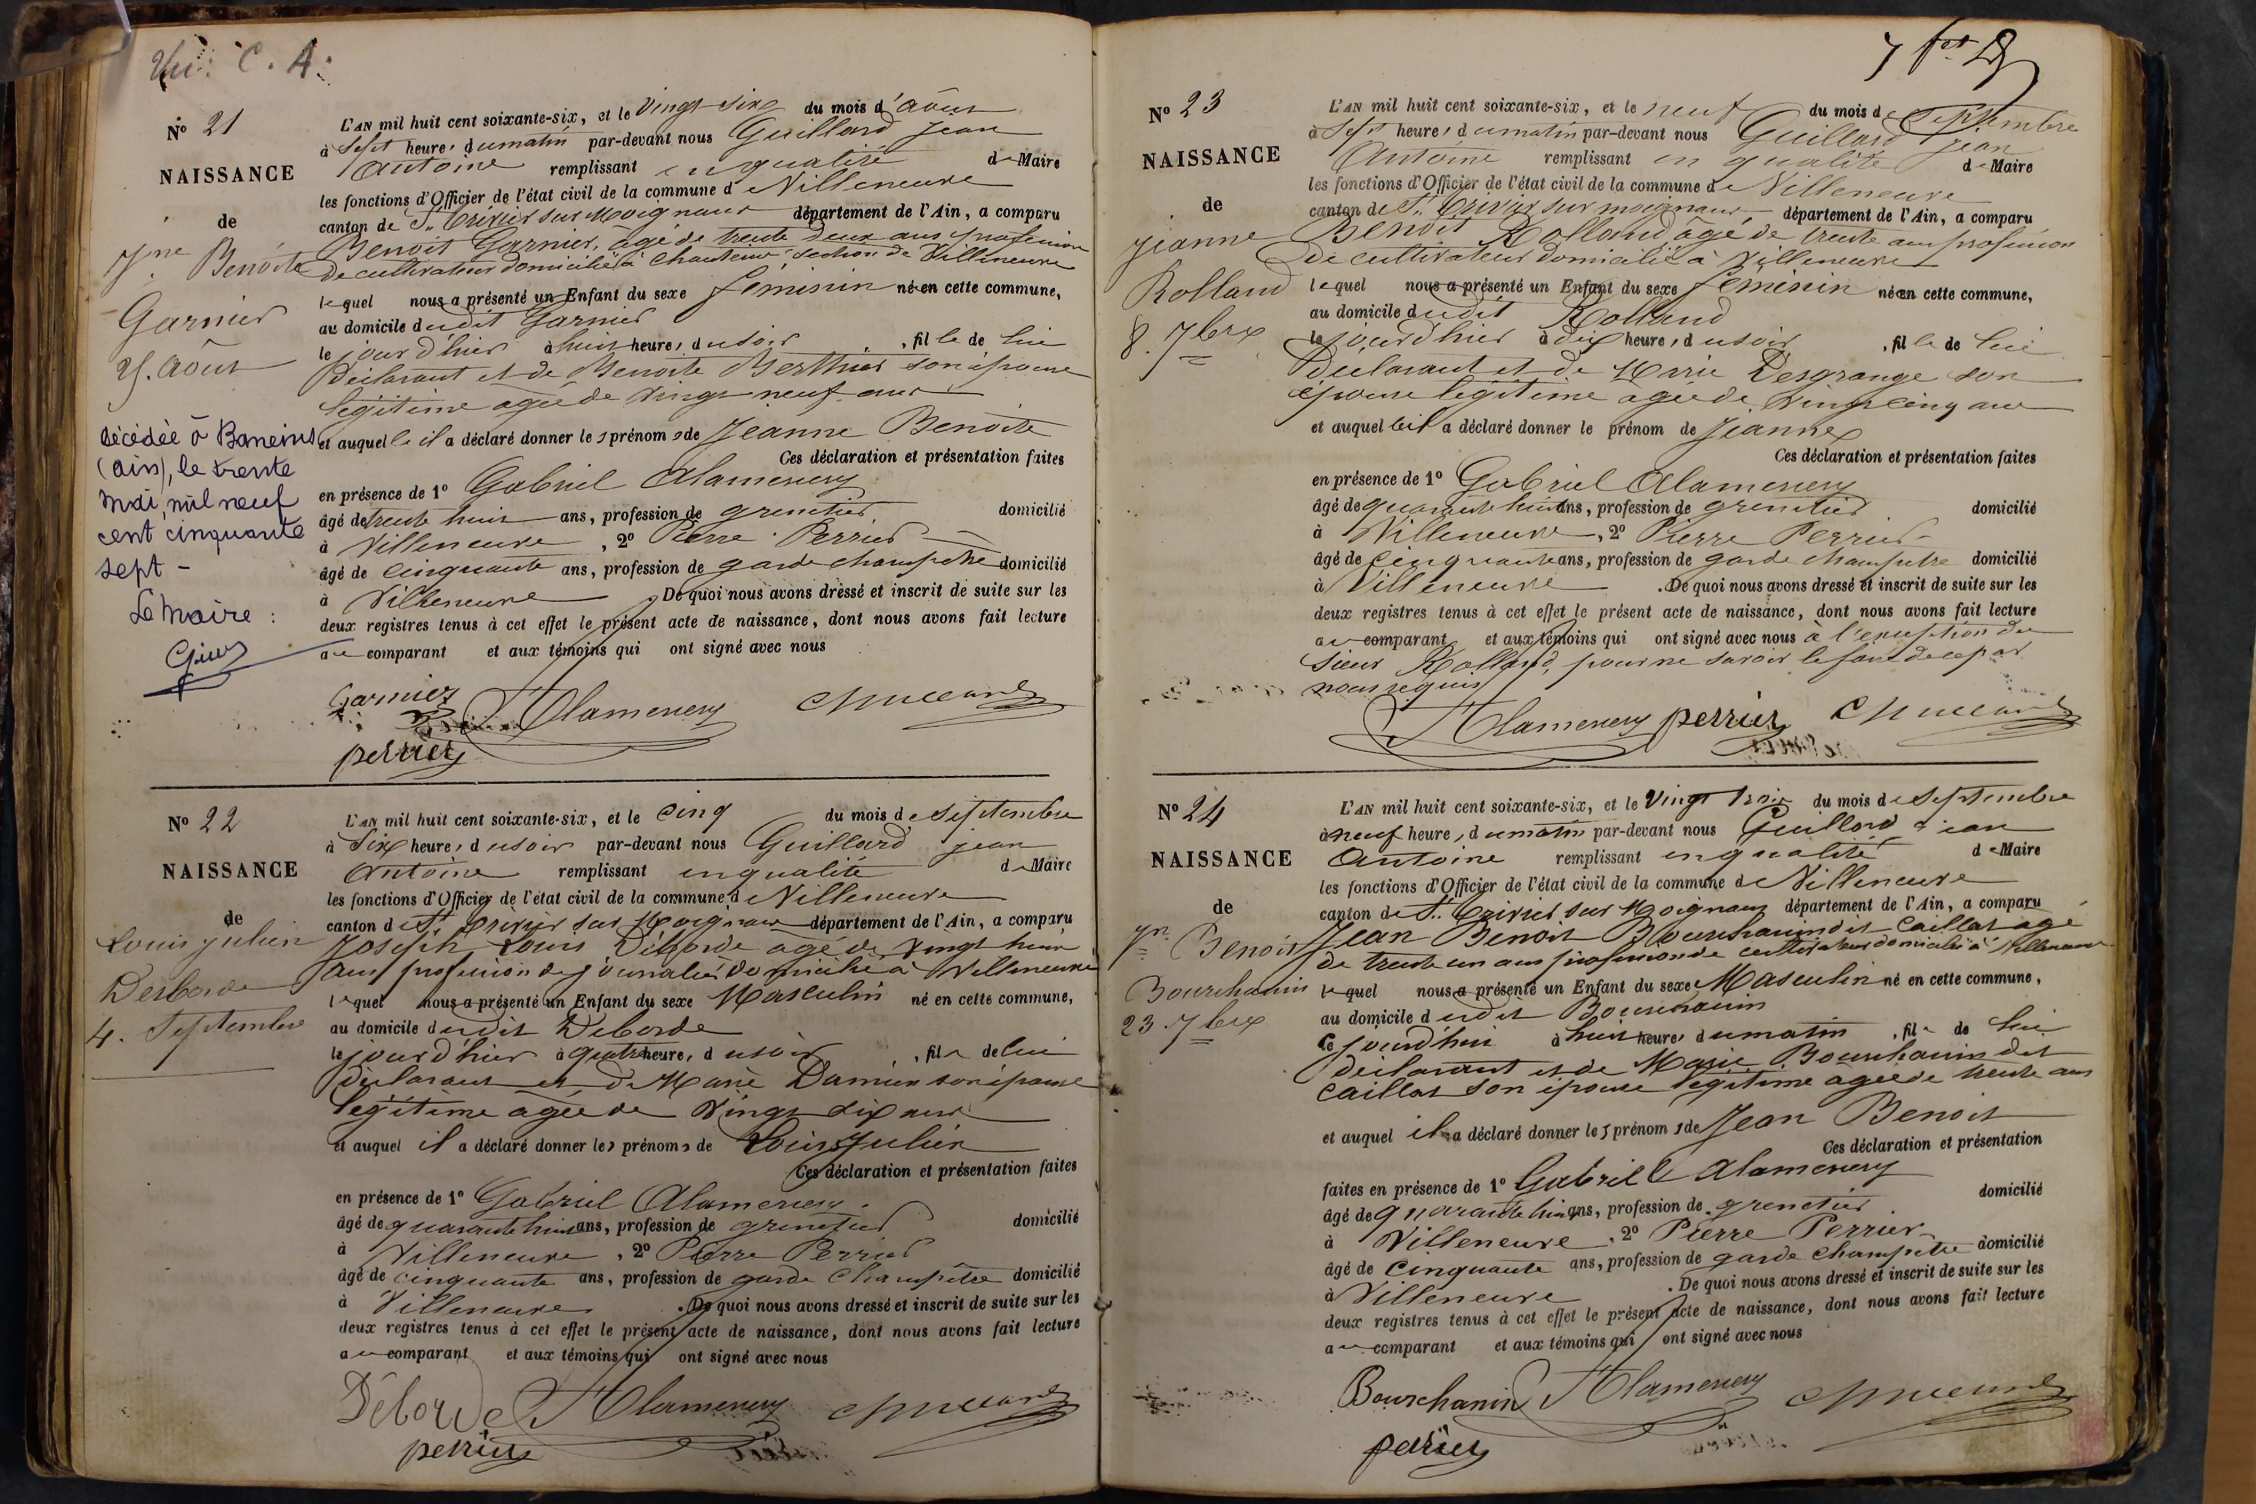 Vu: C. A.
N° 21
NAISSANCE
de
Jne Benoite
Garnier
25. Août
décédée à Baneins
(ain), le trente
mai, mil neuf
cent cinquante
sept -
Le Maire :
L'AN mil huit cent soixante-six, et le Vingt Six du mois d'Août
à Sept heures du matin par-devant nous Guillard Jean
Antoine remplissant en qualité de Maire
les fonctions d'Officier de l'état civil de la commune de Villeneuve
canton de St. Trivier sur Moignans département de l'Ain, a comparu
Benoit Garnier, âgé de trente deux ans profession
de cultivateur domicilié à Chanteins section de Villeneuve
lequel nous a présenté un Enfant du sexe féminin né en cette commune,
au domicile dudit Garnier
le jour d'hier à huit heures du soir, fille de lui
Déclarant et de Benoite Berthier son épouse
légitime agée de Vingt neuf ans
et auquel le il a déclaré donner les prénoms de Jeanne Benoite
Ces déclaration et présentation faites
en présence de 1° Gabriel Alamercery
âgé de trente huit ans, profession de grenetier domicilié
à Villeneuve, 2° Pierre Perrier
âgé de cinquante ans, profession de garde champêtre domicilié
à Villeneuve. De quoi nous avons dressé et inscrit de suite sur les
deux registres tenus à cet effet le présent acte de naissance, dont nous avons fait lecture
au comparant et aux témoins qui ont signé avec nous
Garnier Alamercery
perrier
N° 22
NAISSANCE
de
Louis Julien
Desborde
4. Septembre
L'AN mil huit cent soixante-six, et le cinq du mois de Septembre
à Six heures du soir par-devant nous Guillard jean
Antoine remplissant en qualité de Maire
les fonctions d'Officier de l'état civil de la commune de Villeneuve
canton de St. Trivier sur Moignans département de l'Ain, a comparu
Joseph Louis Déborde agé de Vingt huit
ans profession de journalier domicilié à Villeneuve
lequel nous a présenté un Enfant du sexe Masculin né en cette commune,
au domicile dudit Deborde
le jour d'hier à quatre heures, du soir, fils de lui
déclarant et de Marie Damien son épouse
légitime agée de Vingt six ans
et auquel il a déclaré donner les prénoms de Louis Julien
Ces déclaration et présentation faites
en présence de 1° Gabriel Alamercery
âgé de quarante huit ans, profession de grenetier domicilié
à Villeneuve, 2° Pierre Perrier
âgé de cinquante ans, profession de garde Champêtre domicilié
à Villeneuve. De quoi nous avons dressé et inscrit de suite sur les
deux registres tenus à cet effet le présent acte de naissance, dont nous avons fait lecture
au comparant et aux témoins qui ont signé avec nous
Déborde Alamercery
perrier
N° 23
NAISSANCE
de
jeanne
Rolland
8. 7bre
L'AN mil huit cent soixante-six, et le neuf du mois de Septembre
à Sept heures du matin par-devant nous Guillard jean
Antoine remplissant en qualité de Maire
les fonctions d'Officier de l'état civil de la commune de Villeneuve
canton de St. Trivier sur moignans, département de l'Ain, a comparu
Benoit Rolland agé de trente ans profession
de cultivateur domicilié à Villeneuve
lequel nous a présenté un Enfant du sexe féminin né en cette commune,
au domicile dudit Rolland
le jour d'hier à dix heures, du soir, fille de lui
Déclarant et de Marie Desgrange son
épouse légitime agée de Vingt cinq ans
et auquel le il a déclaré donner le prénom de Jeanne
Ces déclaration et présentation faites
en présence de 1° Gabriel Alamercery
âgé de quarante huit ans, profession de grenetier domicilié
à Villeneuve, 2° Pierre Perrier
âgé de cinquante ans, profession de garde champetre domicilié
à Villeneuve. De quoi nous avons dressé et inscrit de suite sur les
deux registres tenus à cet effet le présent acte de naissance, dont nous avons fait lecture
au comparant et aux témoins qui ont signé avec nous à l'exception du
Sieur Rolland, pour ne savoir le faire de ce par
nous requis
Alamercery perrier
N° 24
NAISSANCE
de
Jn Benoit
Bourchanin
23. 7bre
L'AN mil huit cent soixante-six, et le Vingt trois du mois de Septembre
à neuf heures, du matin par-devant nous Guillard jean
Antoine remplissant en qualité de Maire
les fonctions d'Officier de l'état civil de la commune de Villeneuve
canton de St. Trivier sur Moignans département de l'Ain, a comparu
Jean Benoit Bourchanin dit Caillat agé
de trente un ans profession de cultivateur domicilié à Villeneuve
lequel nous a présenté un Enfant du sexe Masculin né en cette commune,
au domicile dudit Bourchanin
ce jourd'hui à huit heures du matin, fils de lui
déclarant et de Marie Bourchanin dit
Caillat son épouse légitime agée de trente ans
et auquel il a déclaré donner les prénoms de Jean Benoit
Ces déclaration et présentation
faites en présence de 1° Gabriel Alamercery
âgé de quarante huit ans, profession de grenetier domicilié
à Villeneuve, 2° Pierre Perrier
âgé de cinquante ans, profession de garde champetre domicilié
à Villeneuve. De quoi nous avons dressé et inscrit de suite sur les
deux registres tenus à cet effet le présent acte de naissance, dont nous avons fait lecture
au comparant et aux témoins qui ont signé avec nous
Bourchanin Alamercery
perrier